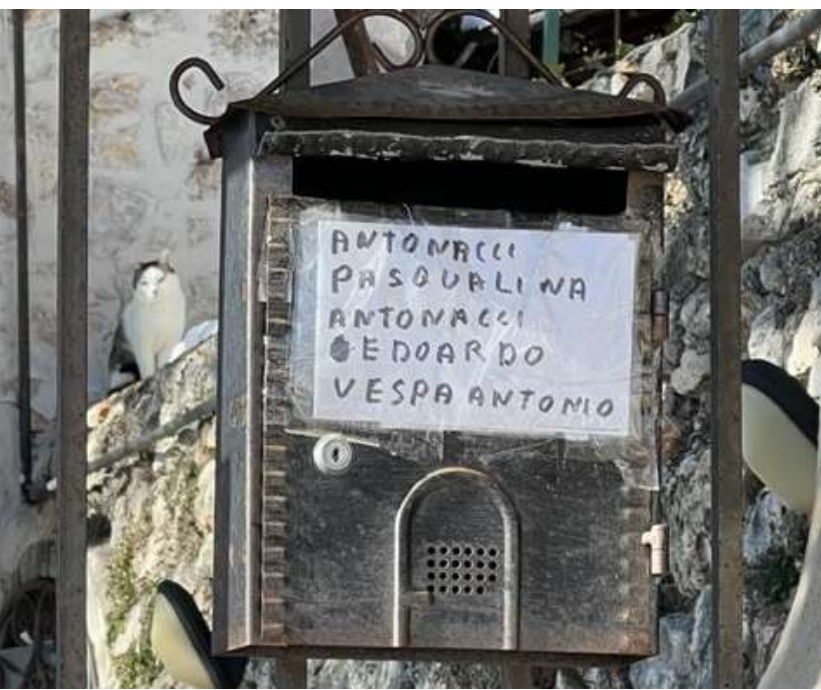 ANTONACCI
PASQUALINA
ANTONACCI
EDOARDO
VESPA ANTONIO